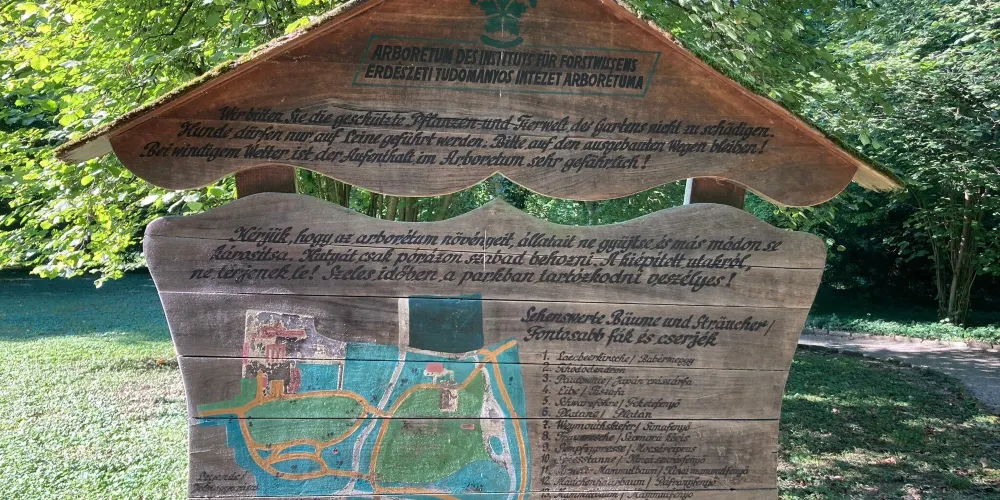 ARBORETUM DES INSTITUTS FÜR FORSTWISSENS
ERDÉSZETI TUDOMÁNYOS INTÉZET ARBORÉTUMA
Wir bitten Sie die geschützte Pflanzen- und Tierwelt des Gartens nicht zu schädigen.
Hunde dürfen nur auf Leine geführt werden. Bitte auf den ausgebauten Wegen bleiben!
Bei windigem Wetter ist der Aufenthalt im Arboretum sehr gefährlich!
Kérjük, hogy az arborétum növényeit, állatait ne gyűjtse és más módon se
károsítsa. Kutyát csak pórázon szabad behozni. A kiépített utakról,
ne térjenek le! Szeles időben a parkban tartózkodni veszélyes!
Sehenswerte Bäume und Sträucher/
Fontosabb fák és cserjék
1. Lorbeerkirsche / Babérmeggy
2. Rhododendron
3.
4. Eibe / Tiszafa
5. Schwarzföhre / Feketefenyő
6. Platane / Platán
7. Weymouthskiefer / Simafenyő
8.
9.
10.
11.
12.
13. Mammutbaum / Mamutfenyő